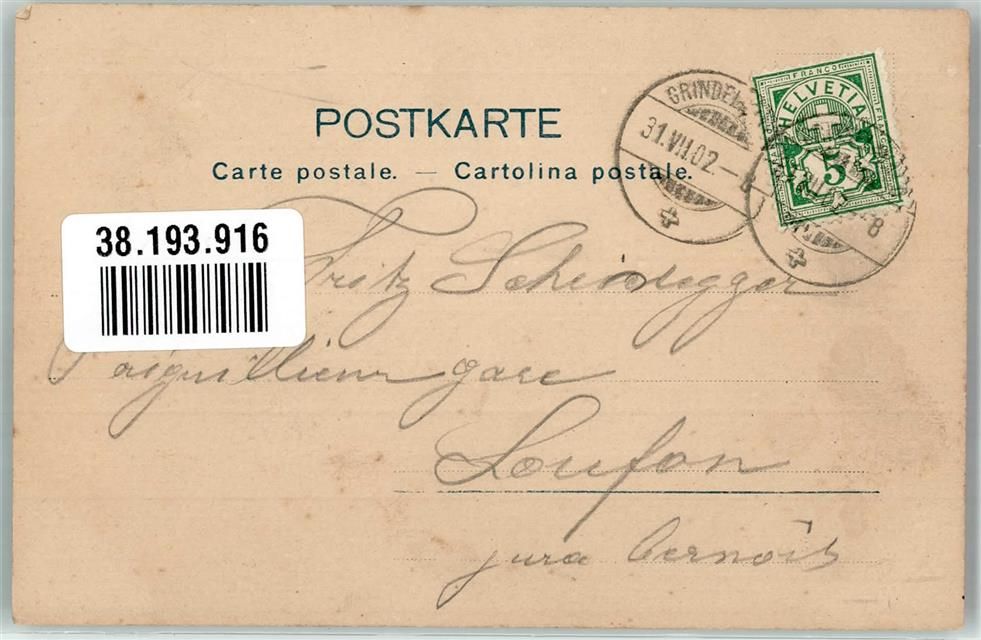 POSTKARTE
Carte postale. — Cartolina postale.
GRINDEL
31.VII.02 – 8
FRANCO
HELVETIA
5
8
38.193.916
Fritz Scheidegger
aiguilleur gare
Soufon
jura bernois